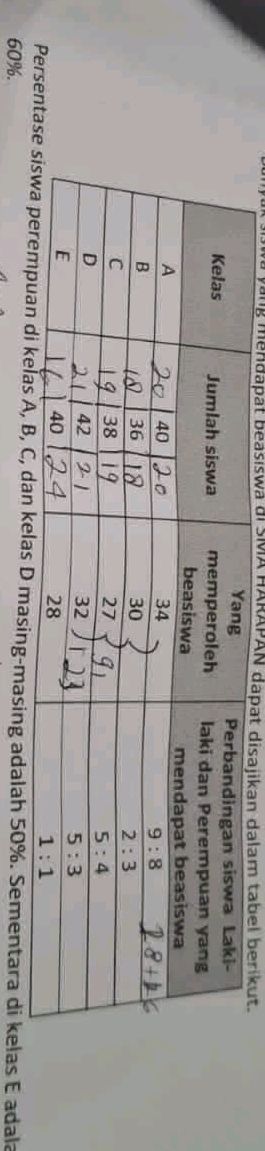 yang mendapat beasiswa di SMA HARAPAN dapat disajikan dalam tabel berikut.
Kelas Jumlah siswa Yang memperoleh beasiswa Perbandingan siswa Laki-laki dan Perempuan yang mendapat beasiswa
A 20 40 20 34 9 : 8
B 18 36 18 30 2 : 3
C 19 38 19 27 91 5 : 4
D 21 42 21 32 123 5 : 3
E 16 40 24 28 1 : 1
Persentase siswa perempuan di kelas A, B, C, dan kelas D masing-masing adalah 50%. Sementara di kelas E
60%.